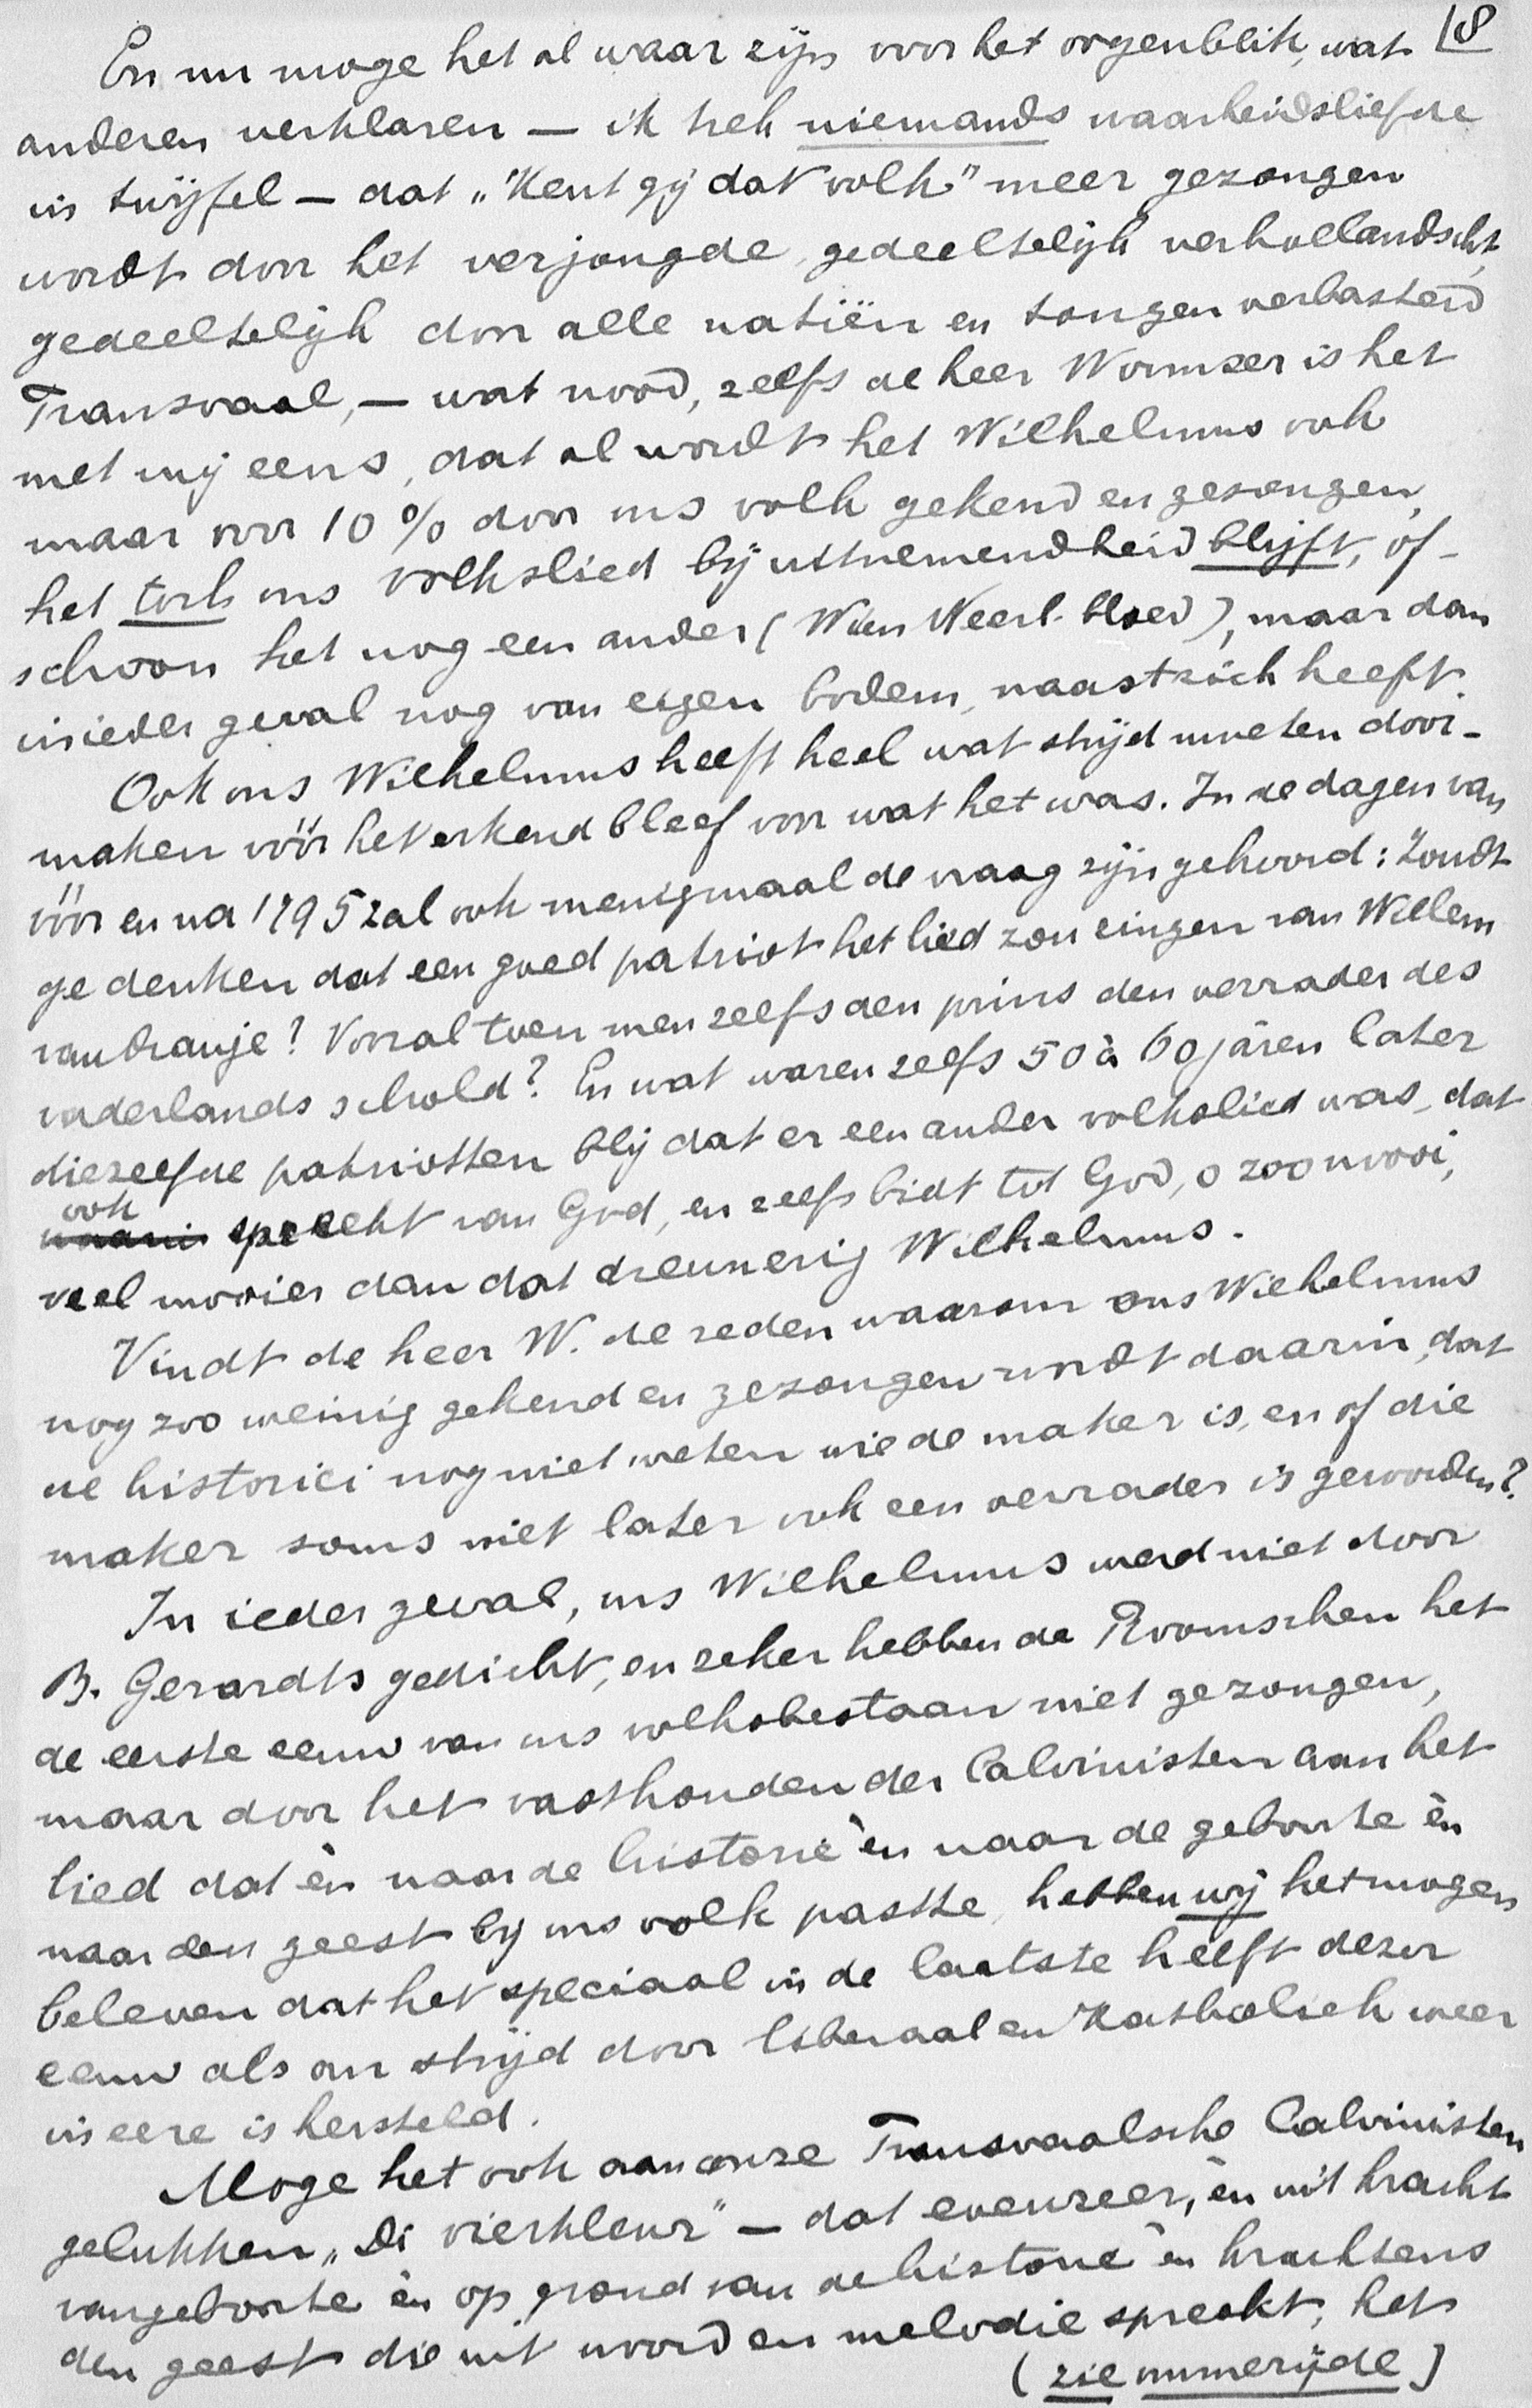 18
En nu moge het al waar zijn voor het oogenblik, wat
anderen verklaren — ik trek niemands waarheidsliefde
in twijfel — dat „Kent gij dat volk" meer gezongen
wordt door het verjongde, gedeeltelijk verhollandscht,
gedeeltelijk door alle natiën en tongen verbasterd
Transvaal, — wat nood, zelfs de heer Wormser is het
met mij eens, dat al wordt het Wilhelmus ook
maar voor 10 % door ons volk gekend en gezongen,
het toch ons volkslied bij uitnemendheid blijft, of-
schoon het nog een ander (Wien Neerl. bloed), maar dan
in ieder geval nog van eigen bodem, naast zich heeft.
Ook ons Wilhelmus heeft heel wat strijd moeten door-
maken vóór het erkend bleef voor wat het was. In de dagen van
vóór en na 1795 zal ook menigmaal de vraag zijn gehoord: Zoudt
ge denken dat een goed patriot het lied zou zingen van Willem
van Oranje? Vooral toen men zelfs den prins den verrader des
vaderlands schold? En wat waren zelfs 50 à 60 jaren later
diezelfde patriotten blij dat er een ander volkslied was, dat
ook
spreekt van God, en zelfs bidt tot God, o zoo mooi,
veel mooier dan dat dreunerig Wilhelmus.
Vindt de heer W. de reden waarom ons Wilhelmus
nog zoo weinig gekend en gezongen wordt daarin, dat
de historici nog niet weten wie de maker is, en of die
maker soms niet later ook een verrader is geworden?
In ieder geval, ons Wilhelmus werd niet door
B. Gerardts gedicht, en zeker hebben de Roomschen het
de eerste eeuw van ons volksbestaan niet gezongen,
maar door het vasthouden der Calvinisten aan het
lied dat èn naar de historie èn naar de geboorte èn
naar den geest bij ons volk paste, hebben wij het mogen
beleven dat het speciaal in de laatste helft dezer
eeuw als om strijd door liberaal en Katholiek weer
in eere is hersteld.
Moge het ook aan onze Transvaalsche Calvinisten
gelukken „Di vierkleur" — dat evenzeer, èn uit kracht
van geboorte èn op grond van de historie èn krachtens
den geest die uit woord en melodie spreekt, het
(zie ommezijde)